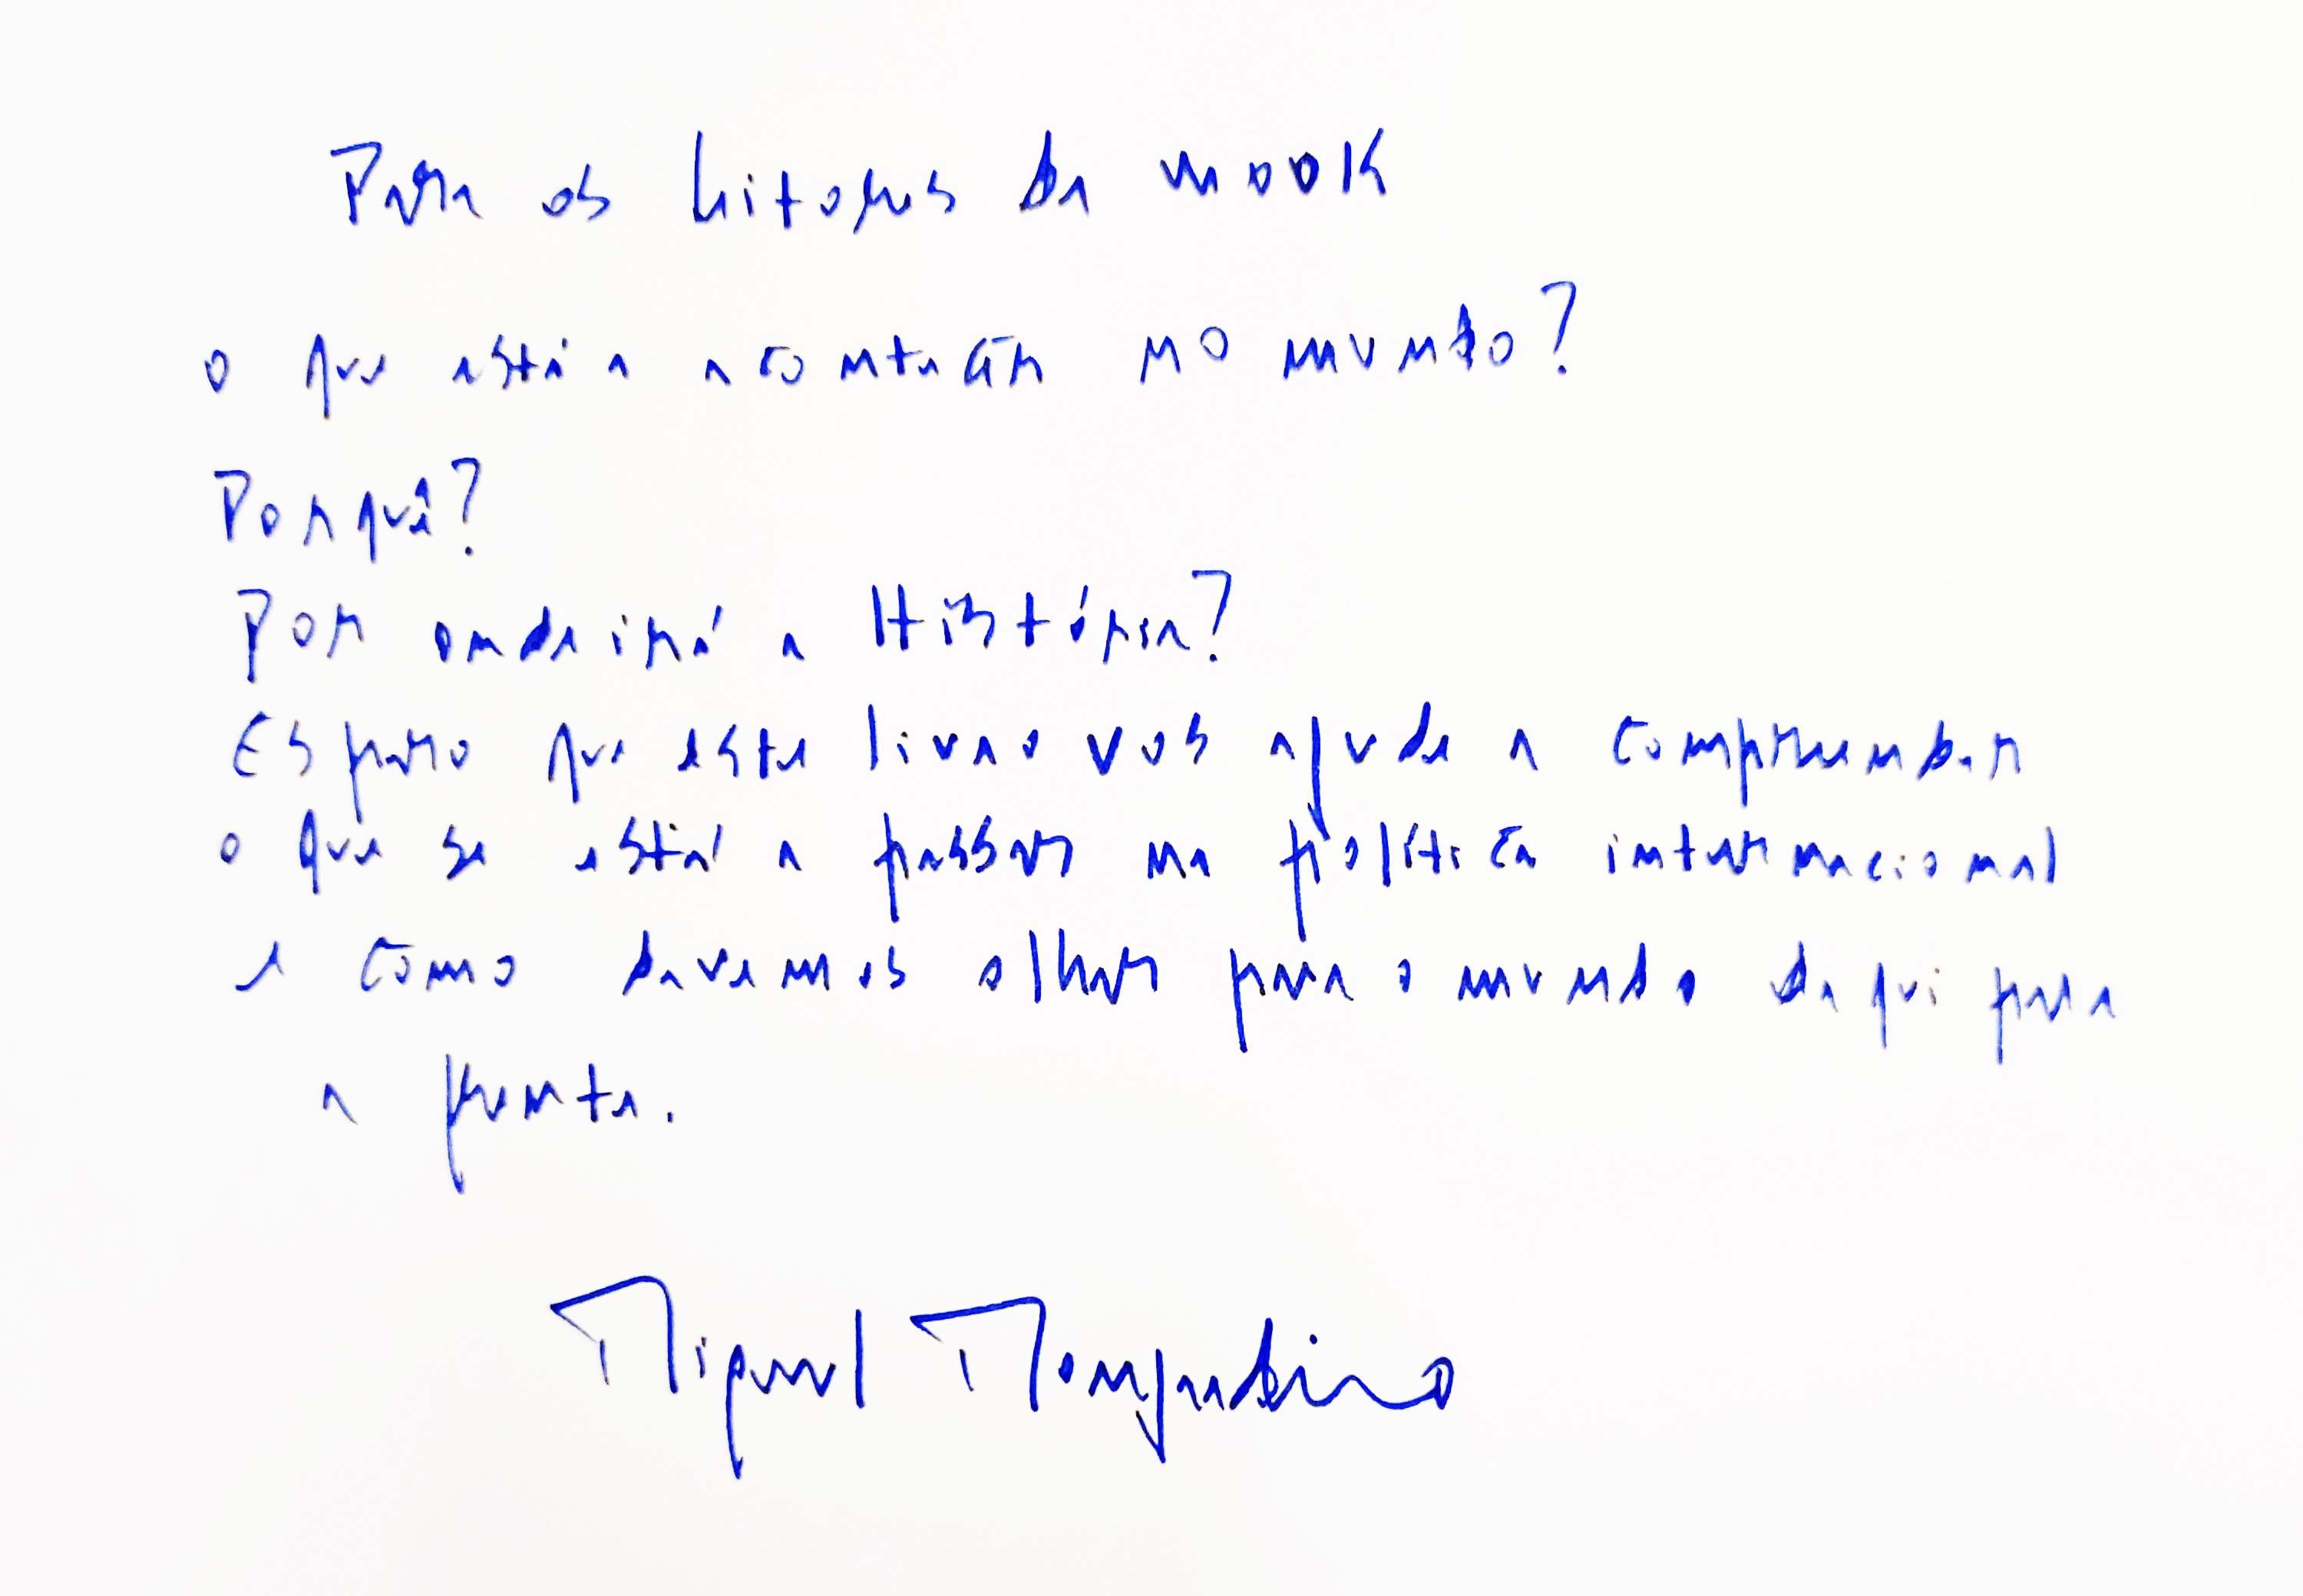 Para os leitores da wook
o que está a acontecer no mundo?
Porquê?
Por onde irá a História?
Espero que este livro vos ajude a compreender
o que se está a passar na política internacional
e como devemos olhar para o mundo daqui para
a frente.
Miguel Monjardino